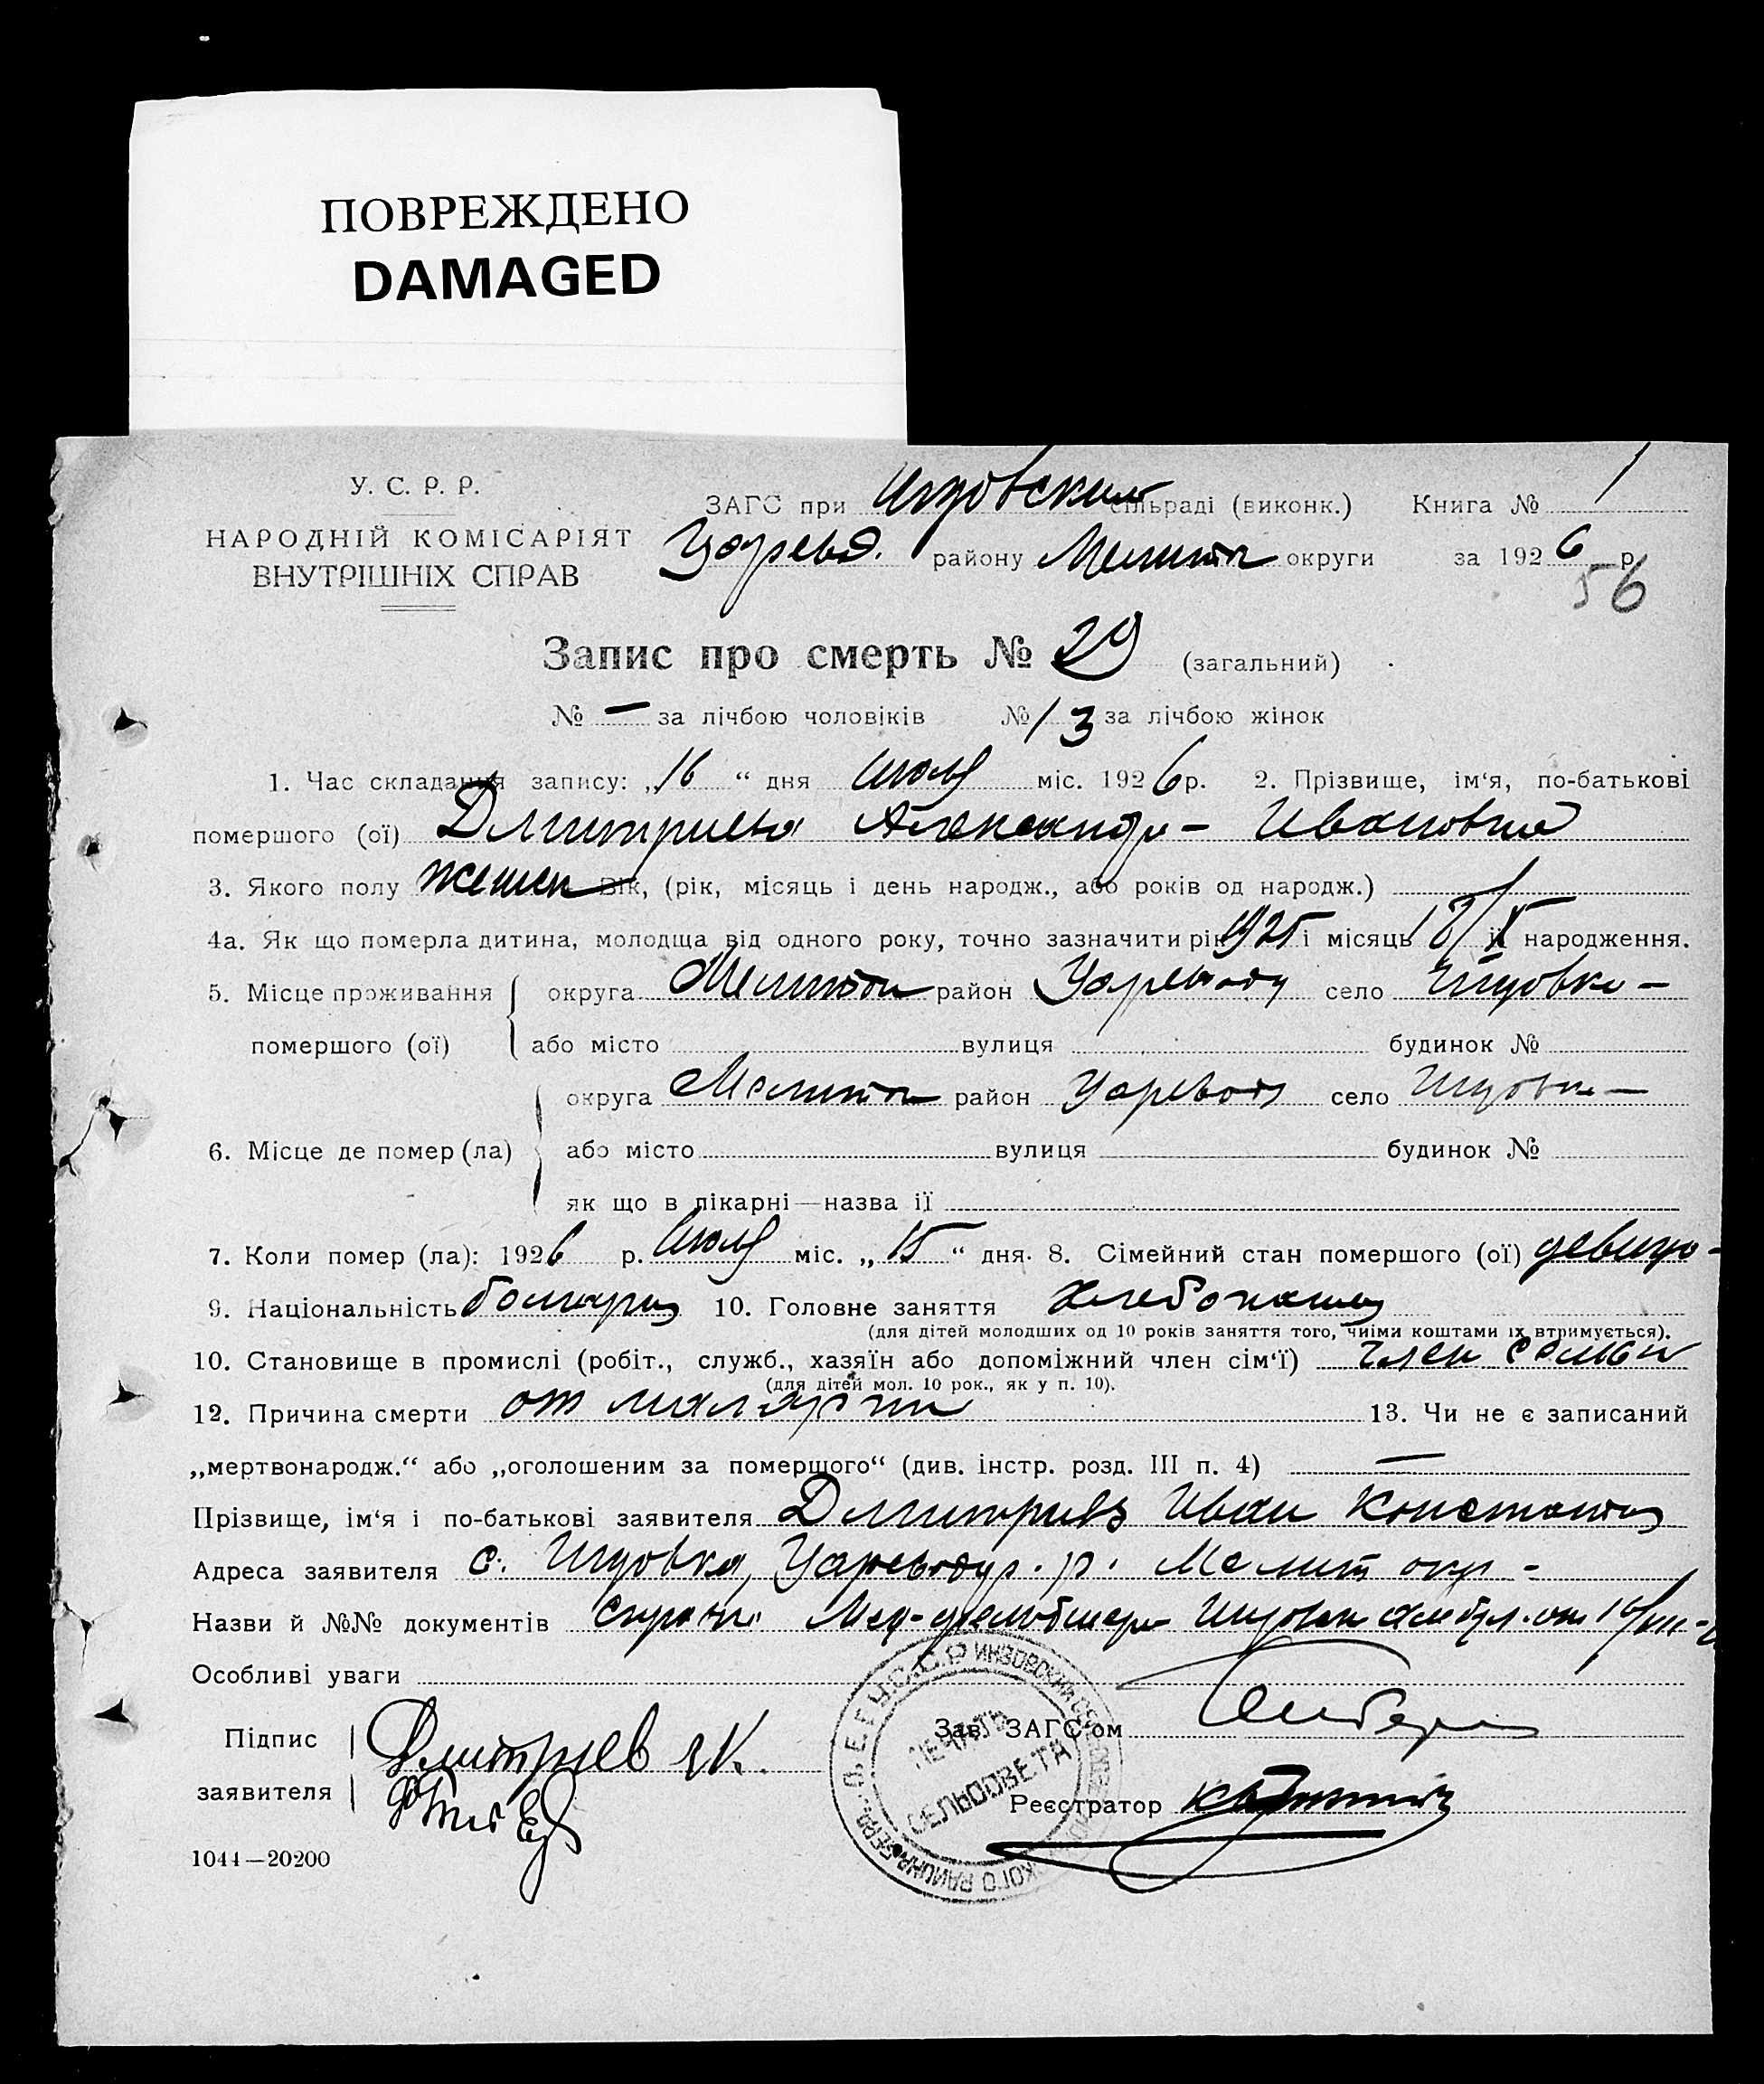 ПОВРЕЖДЕНО
DAMAGED
У. С. Р. Р.
НАРОДНІЙ КОМІСАРІЯТ
ВНУТРІШНІХ СПРАВ
ЗАГС при Инзовским сільраді (виконк.) Книга № 1
Царевод. району Мелитоп округи за 1926 р.
56
Запис про смерть № 29 (загальний)
№ — за лічбою чоловіків № 13 за лічбою жінок
1. Час складання запису: „16“ дня июля міс. 1926 р. 2. Прізвище, ім‘я, по-батькові
помершого (ої) Дмитриева Александра Ивановна
3. Якого полу женск Вік, (рік, місяць і день народж., або років од народж.)
4а. Як що померла дитина, молодща від одного року, точно зазначити рік 1925 і місяць 18/X її народження.
5. Місце проживання помершого (ої) округа Мелитоп район Царевод село Инзовка —
або місто вулиця будинок №
6. Місце де помер (ла) округа Мелитоп район Царевод село Инзовка —
або місто вулиця будинок №
як що в лікарні—назва її
7. Коли помер (ла): 1926 р. Июля міс. „15“ дня. 8. Сімейний стан помершого (ої) девица -
9. Національність болгары 10. Головне заняття Хлебопашец
(для дітей молодших од 10 років заняття того, чиїми коштами їх втримується).
10. Становище в промислі (робіт., служб., хазяїн або допоміжний член сім‘ї) член семьи
(для дітей мол. 10 рок., як у п. 10).
12. Причина смерти от малярии 13. Чи не є записаний
„мертвонародж.“ або „оголошеним за помершого“ (див. інстр. розд. III п. 4) —
Прізвище, ім‘я і по-батькові заявителя Дмитриев Иван Константин
Адреса заявителя с. Инзовка, Царевод. р. Мелит окр -
Назви й №№ документів Мед-фельдшера Инзовск амбул. от 16/VII-
Особливі уваги
Підпис заявителя Дмитриев И.К.
Зав. ЗАГС‘ом
Реєстратор
У.С.С.Р. ИНЗОВСКИЙ
ПЕЧАТЬ
СЕЛЬСОВЕТА
1044—20200